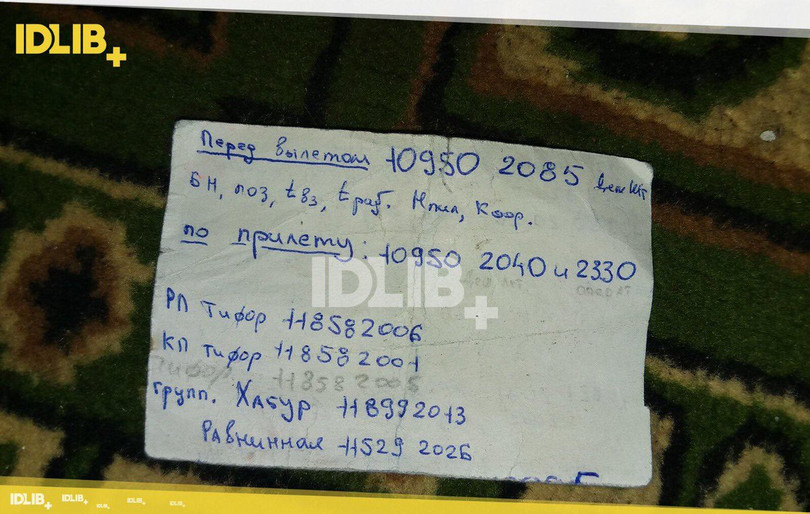 IDLIB+
Перед вылетом 10950 2085
БН, поз, tвз, tраб. Нпил, Коор.
по прилёту: 10950 2040 и 2330
IDLIB+
РП Тифор 118582006
КП Тифор 118582001
Тифор 118582005
групп. Хабур 118992013
Равнинная 11529 2026
IDLIB+ IDLIB+